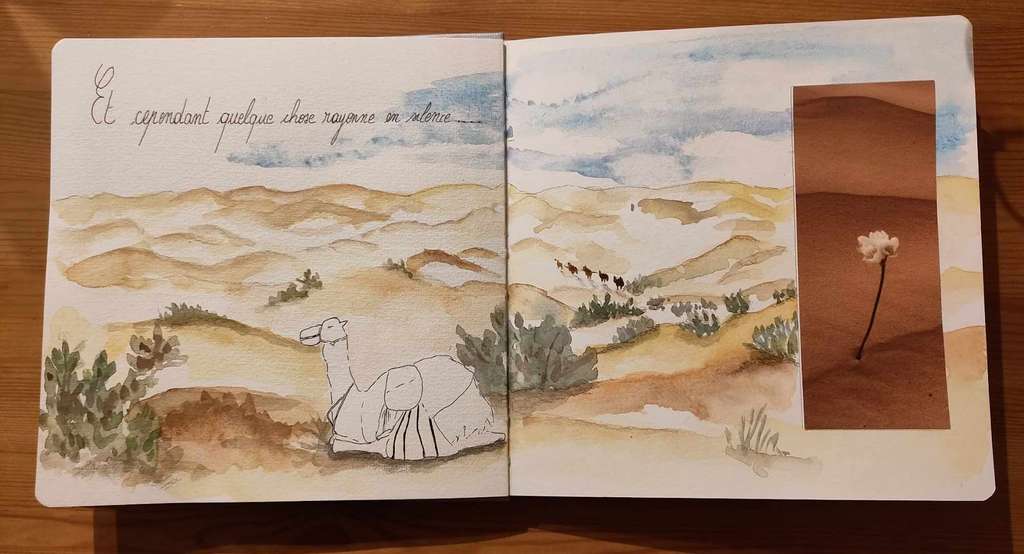 Et cependant quelque chose rayonne en silence.....